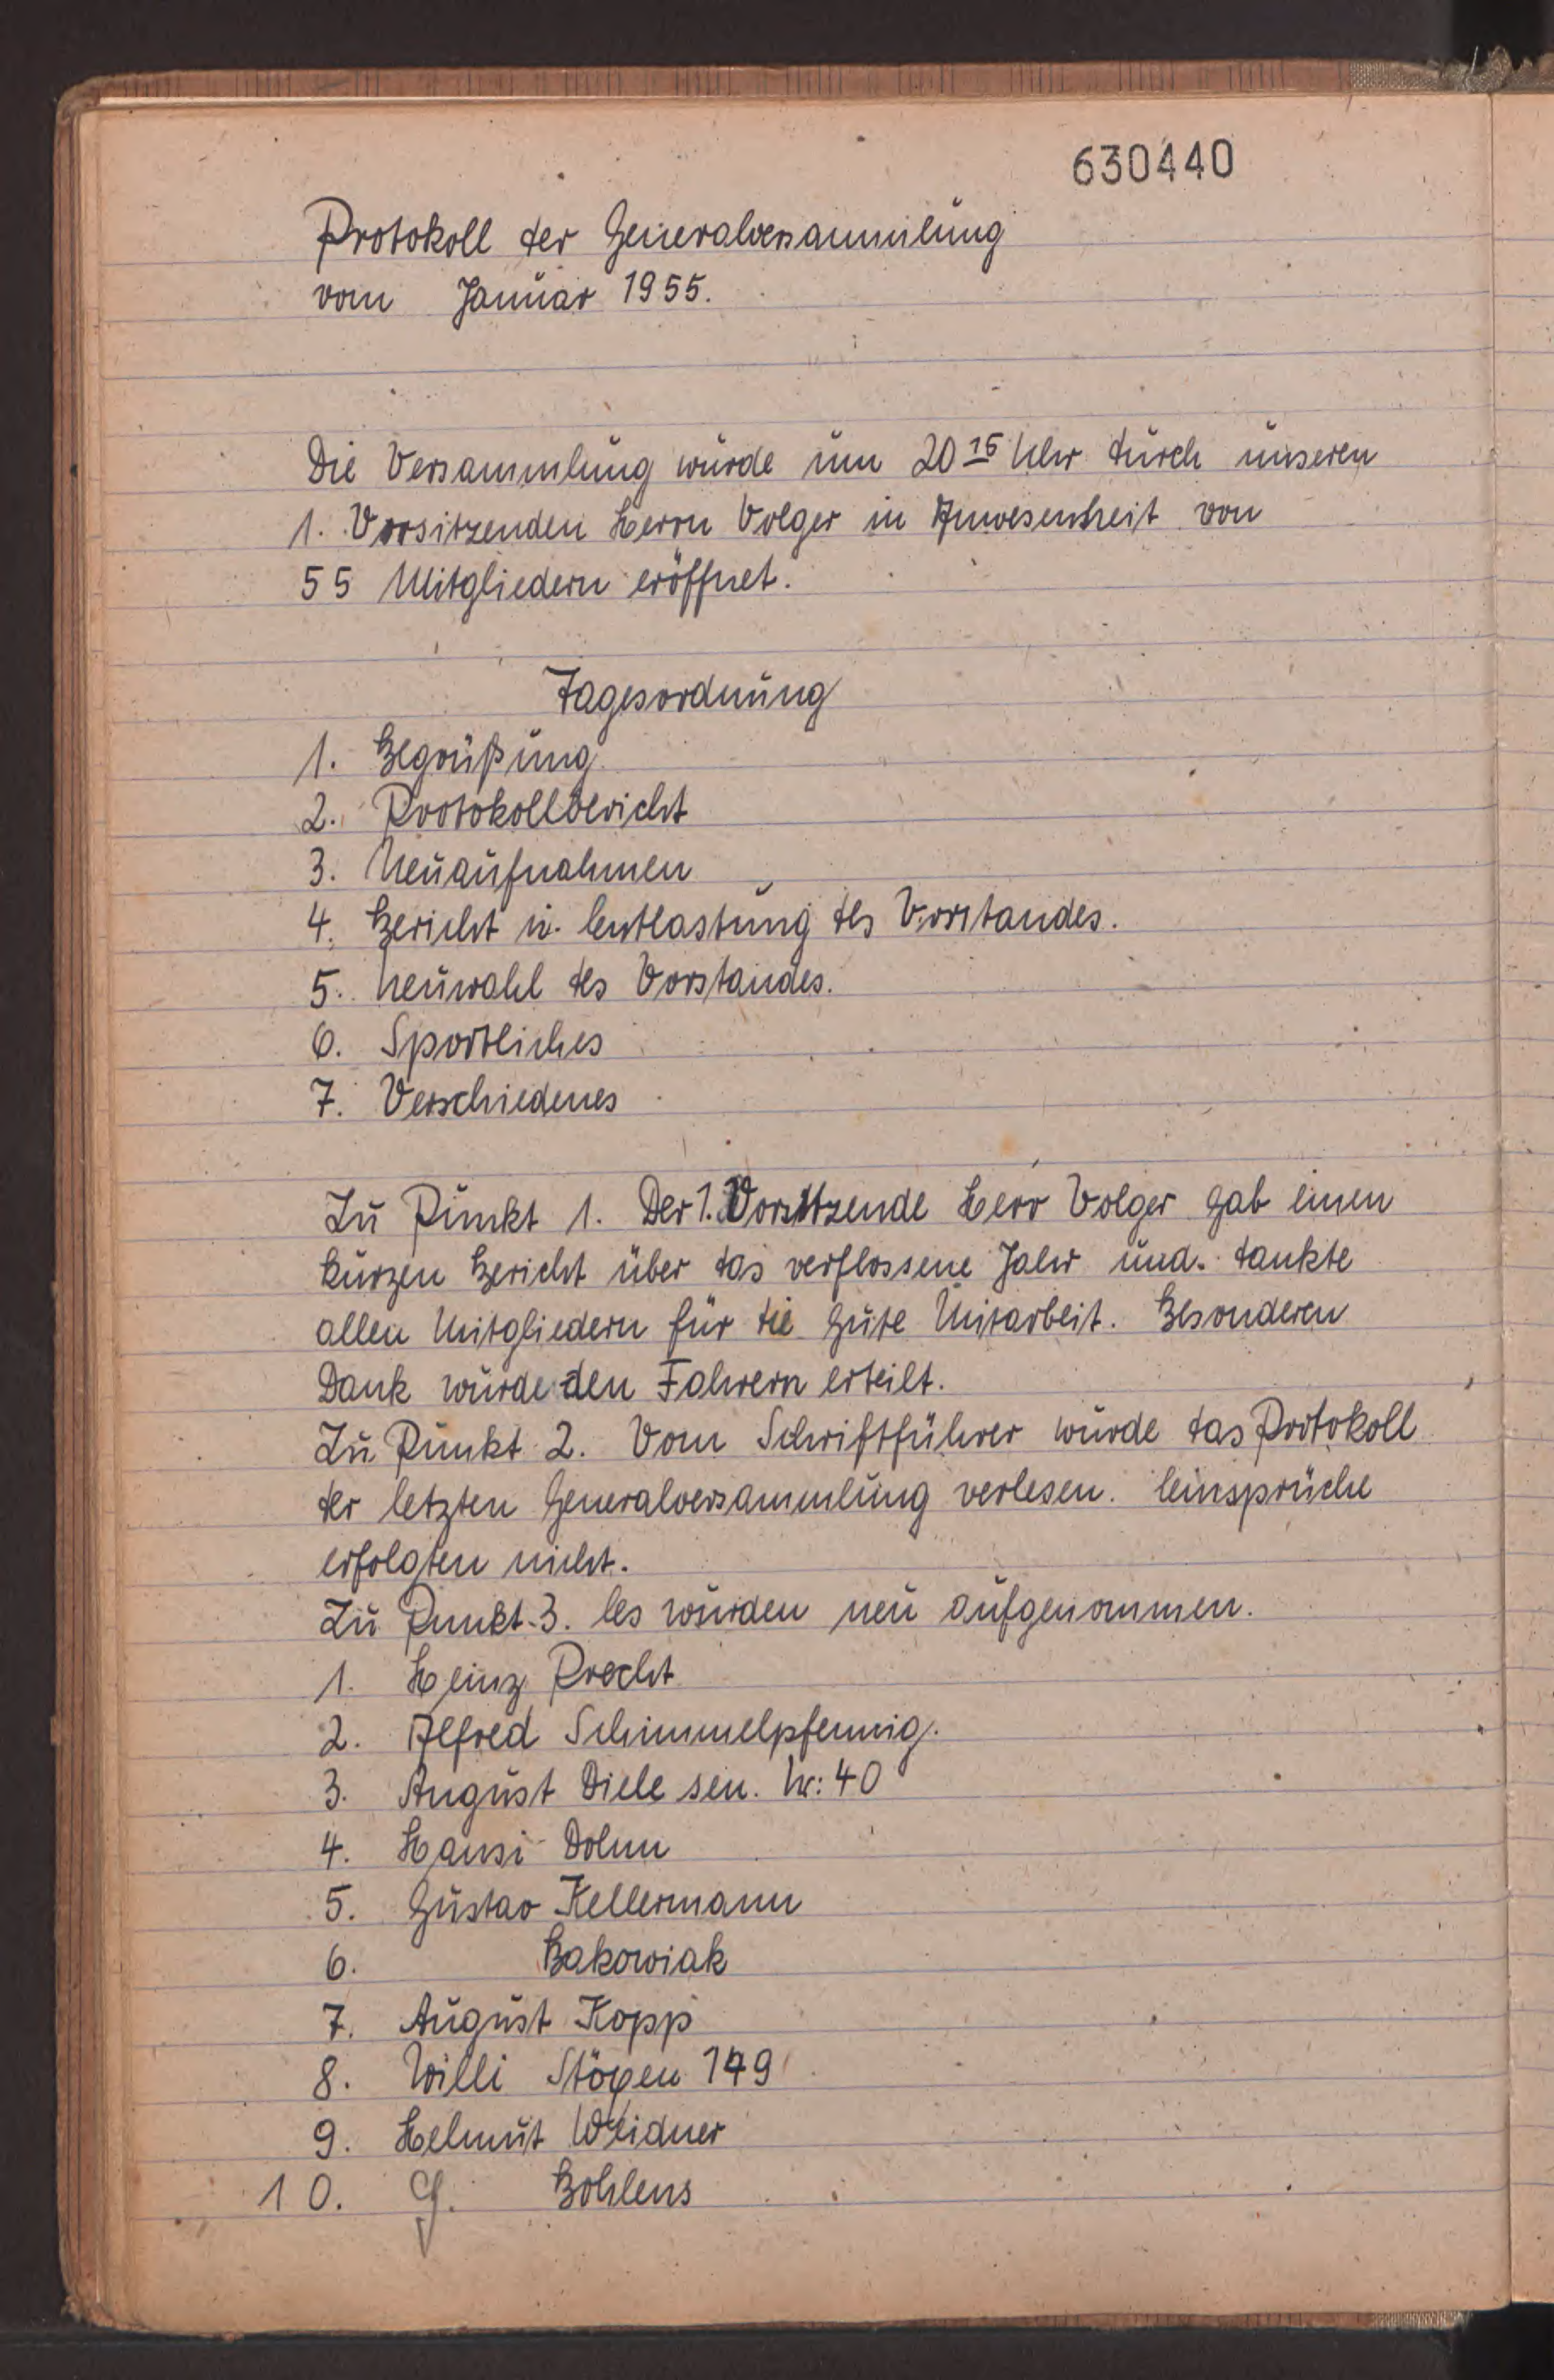 630440
Protokoll der Generalversammlung
vom Januar 1955.
Die Versammlung wurde um 20 15 Uhr durch unseren
1. Vorsitzenden Herrn Volger in Anwesenheit von
55 Mitgliedern eröffnet.
Tagesordnung
1. Begrüßung
2. Protokollbericht
3. Neuaufnahmen
4. Bericht u. Entlastung des Vorstandes.
5. Neuwahl des Vorstandes.
6. Sportliches
7. Verschiedenes
Zu Punkt 1. Der 1. Vorsitzende Herr Volger gab einen
kurzen Bericht über das verflossene Jahr und dankte
allen Mitgliedern für die gute Mitarbeit. Besonderen
Dank wurde den Fahrern erteilt.
Zu Punkt 2. Vom Schriftführer wurde das Protokoll
der letzten Generalversammlung verlesen. Einsprüche
erfolgten nicht.
Zu Punkt 3. Es wurden neu aufgenommen.
1. Heinz Precht
2. Alfred Schimmelpfennig.
3. August Diele sen. Nr: 40
4. Hansi Dohm
5. Gustav Kellermann
6. Bakowiak
7. August Kopp
8. Willi Stögen 149
9. Helmut Weidner
10. G. Bohlens